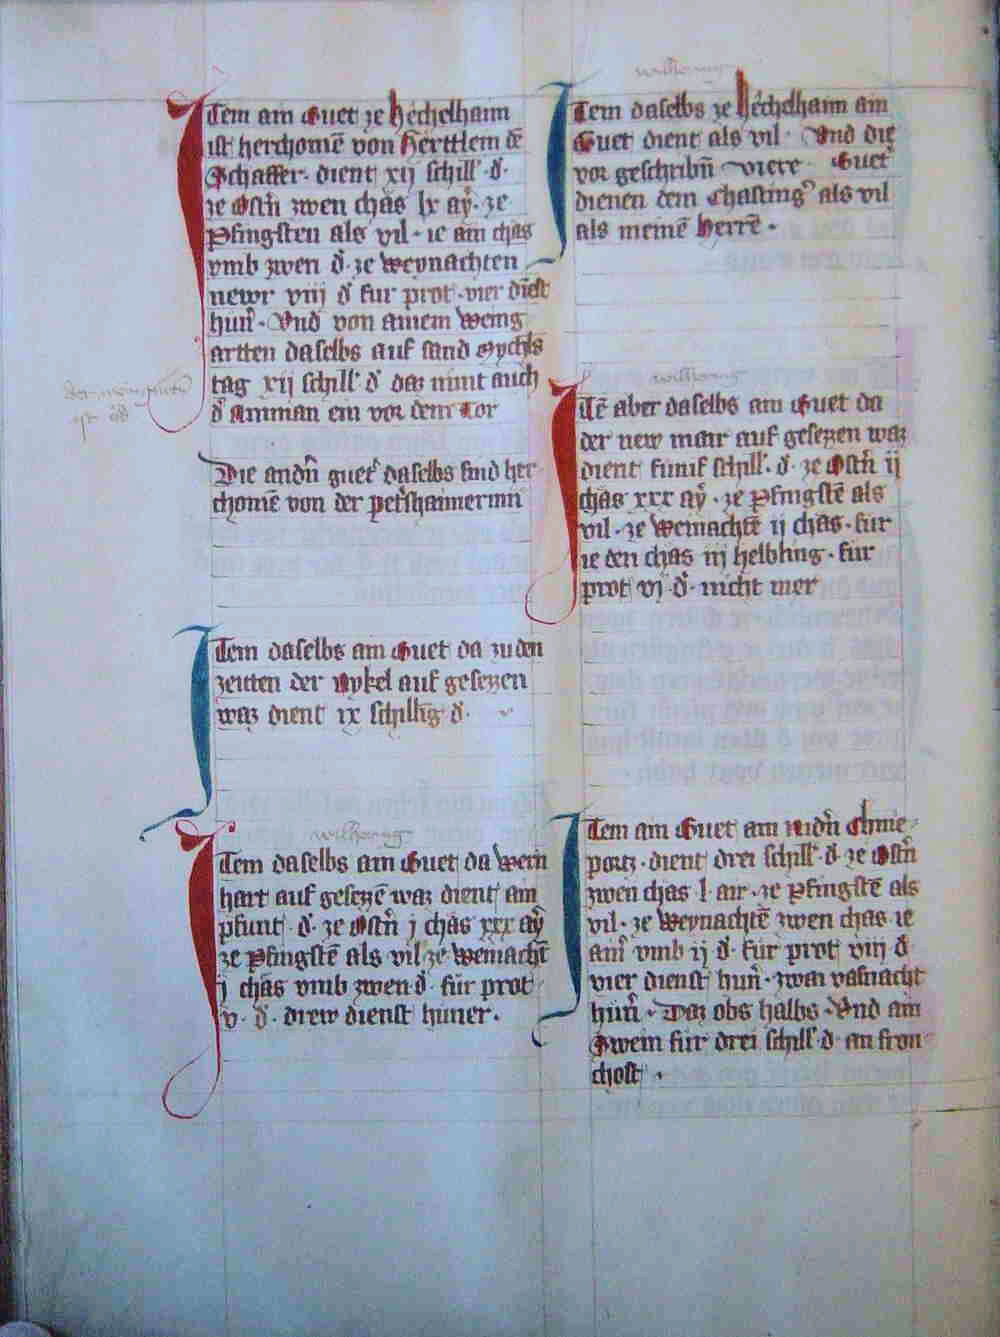 Item am Guet ze Hechelhaim
ist herchomē von Herttlem dē
Schaffer · dient xij schill · d̄ ·
ze Ostn̄ zwen chas lx aẏ · ze
Pfingsten als vil · ie ain chas
vmb zwen d̄ · ze weynachten
newr viij d̄ fur prot · vier dinst
hun̄ · Vnd von ainem weing
artten daselbs auf sand Mychls
tag xij schill d̄ daz nimt auch
d̄ Amman ein vor dem Tor
Die andn̄ guet daselbs sind her
chomē von der
Item daselbs am Guet da zu den
zeitten der Nykel auf gesezzen
waz dient ix schilling d̄ ·
wilhering
Item daselbs am Guet da wein
hart auf gesezzē waz dient ain
pfunt · d̄ · ze Ostn̄ j chas xxx aẏ
ze Pfingstē als vil ze weinacht̄
j chas vmb zwen d̄ · für prot
v · d̄ · drew dienst huner ·
wilhering
Item daselbs ze Hechelhaim ain
Guet dient als vil · Vnd die
vor geschribn̄ viere · Guet
dienen dem Chasting als vil
als meinē Herrē ·
wilhering
Itē aber daselbs am Guet da
der new mair auf gesezzen waz
dient funif schill · d̄ · ze Ostn̄ ij
chas xxx aẏ · ze Pfingstē als
vil · ze weinachtē ij chas · fur
ie den chas iij helbling · fur
prot vj d̄ · nicht mer
Item am Guet am Nidn̄ Chnie
potz · dient drei schill · d̄ · ze Ostn̄
zwen chas · l · air · ze Pfingstē als
vil · ze Weynachtē zwen chas ie
ain̄ vmb ij d̄ · für prot viij d̄
vier dienst hun̄ · zwai vasnacht
hun̄ · Daz obs halbs · Vnd ain
Swein für drei schill · d̄ · an fron
chost ·